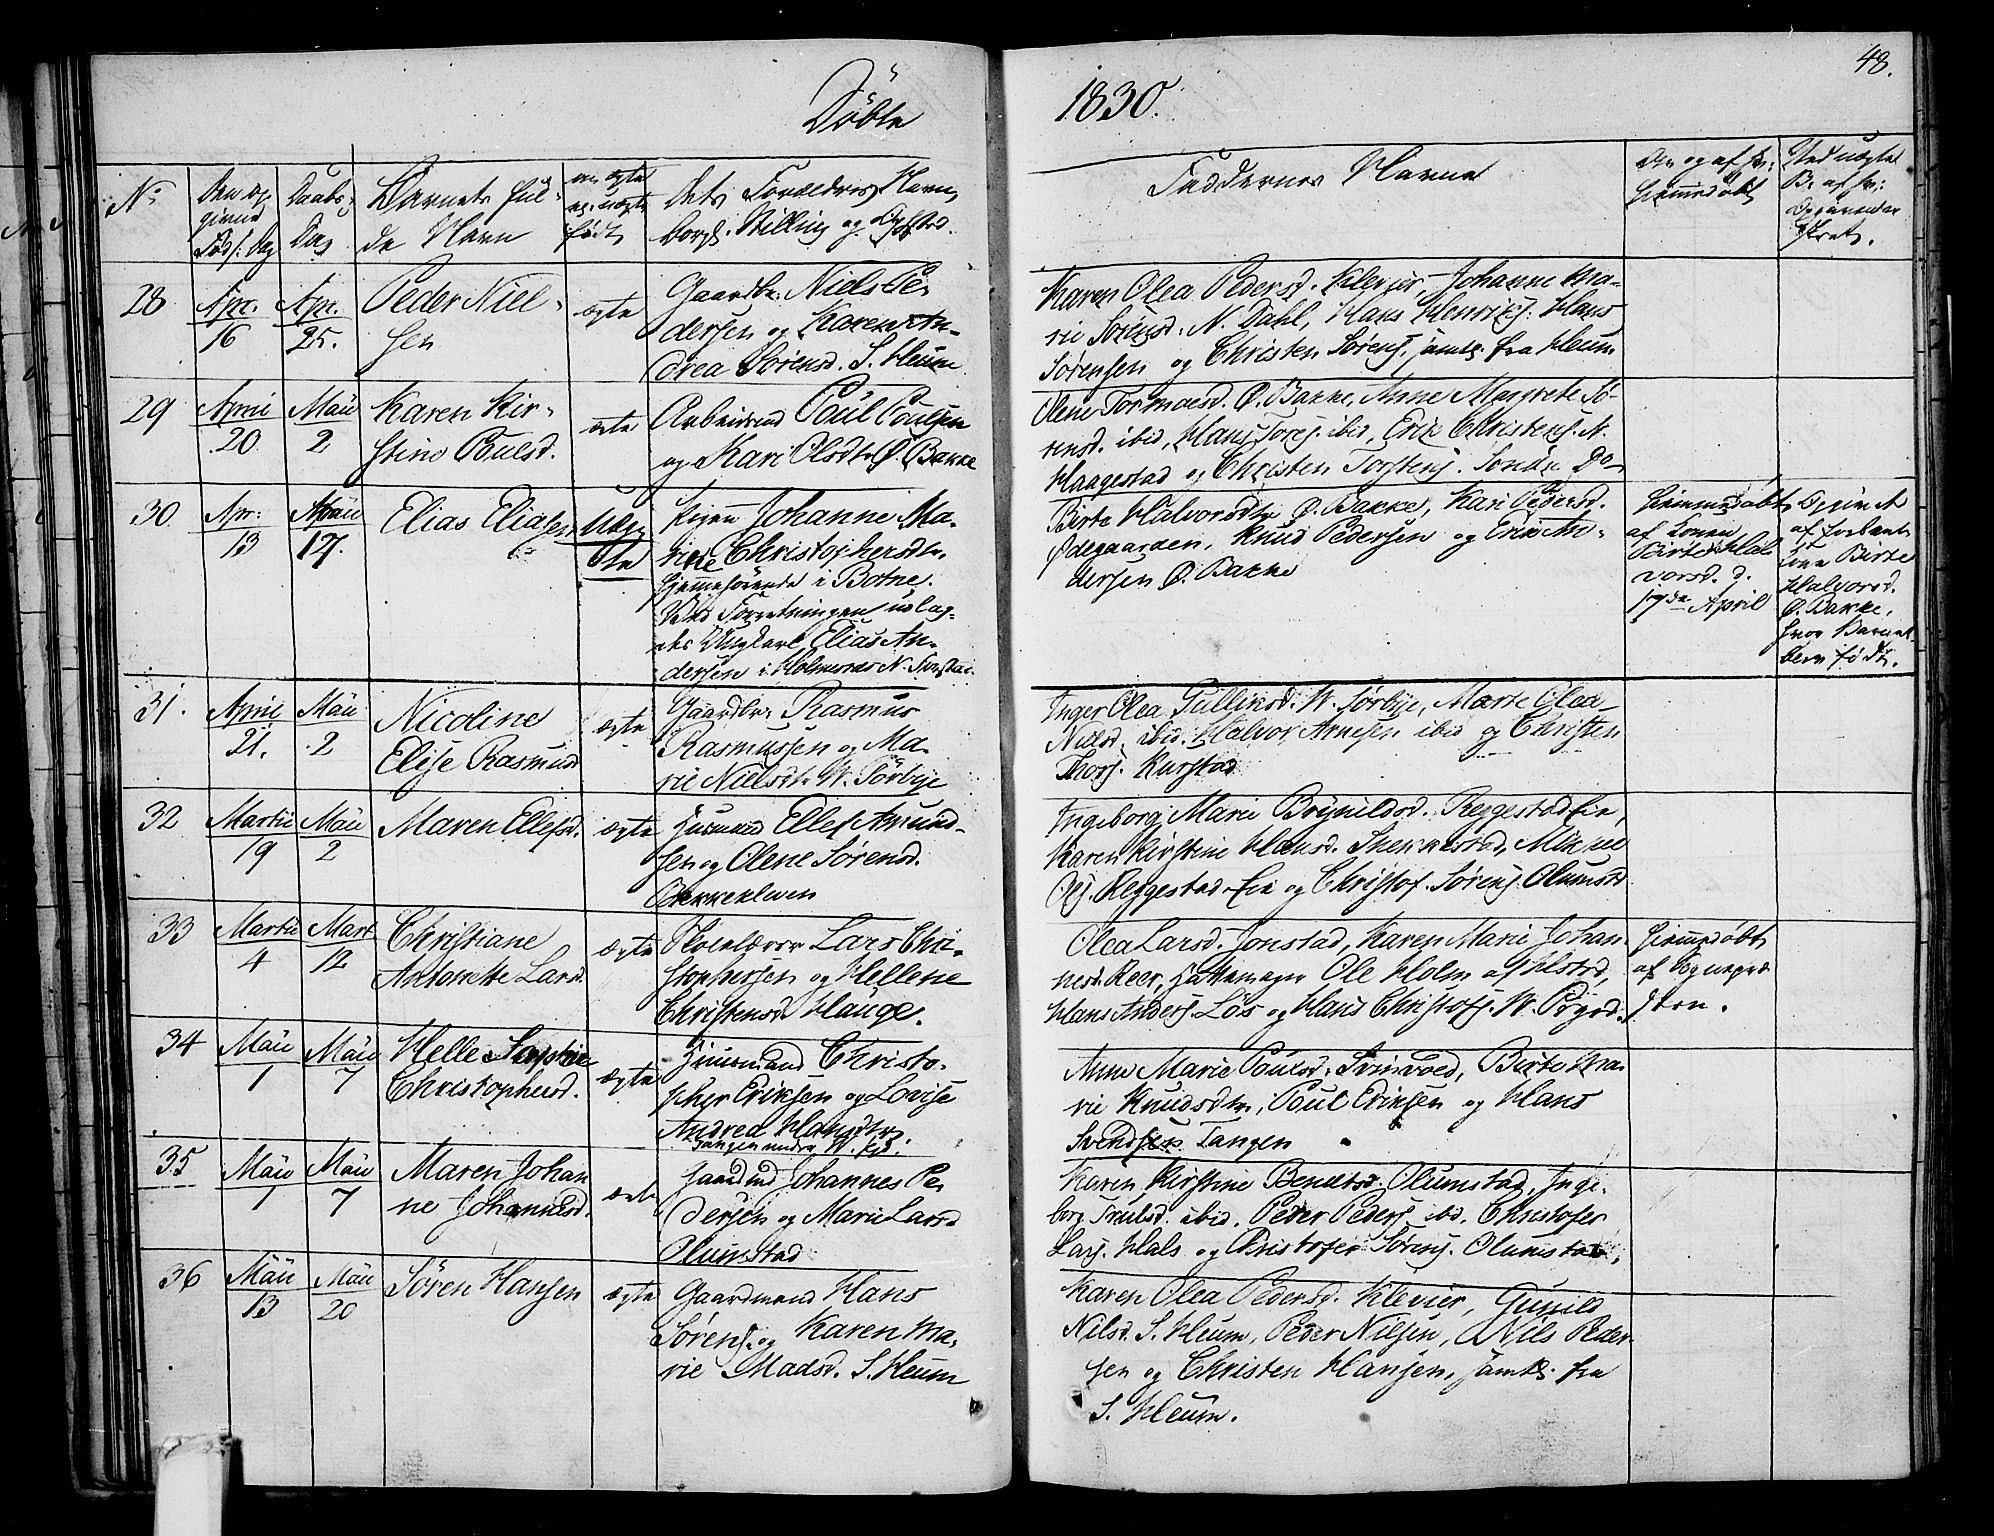 48.
Döbte 1830.
No
Den op
givne
Föds: Dag
Daabs
Dag
Barnets ful-
de Navn
om ægte
el. uægte
født
Dets Forældres Navn,
Borgl. Stilling og Opholdsd.
Faddernes Navne
Om og af hv:
hjemmedøbt
Ved uægte
B: af hv:
28
Apr.
16
Apr.
25.
Peder Niel-
sen
ægte
Gaardbr. Niels Pe-
dersen og Karen An-
drea Sørensd. S. Heum
Karen Olea Pedersd. Klever, Johanne Ma-
rie Sørensd. N. Dahl, Hans Henriks. Hans
Sørensen og Christen Sørens. samtl. fra Heum
29
April
20
Mai
2
Karen Kir-
stine Poulsd.
ægte
Arbeidsmd Poul Poulsen
og Kari Olsdtr Ø. Bakke
Olene Tormoesd. Ø. Bakke, Anne Margrete Sø-
rensd. ibid, Hans Tores. ibid, Erik Christens. N.
Haagestad og Christen Torstens. Søndre Do-
30
Apr:
13
17.
Elias Eliasen
Uæg
te
Pigen Johanne Ma-
rie Christophersdtr.
hjemmehørende i Botne.
Ved Forretningen udlag-
des Ungkarl Elias An-
dersen i Holmsnæs N.
Birte Halvorsdtr Ø. Bakke, Kari Pedersd.
Ødegaarden, Knud Pedersen og Erik An-
dersen Ø. Bakke
Hjemmedøbt
af Konen
Birte Hal
vorsd. d.
17de April
af
Kone Birte
Halvorsd.
Ø. Bakke,
hvor Barnet
blev født.
31.
April
21.
Mai
2
Nicoline
Elise Rasmusd
ægte
Gaardbr. Rasmus
Rasmussen og Ma-
rie Nielsdtr. W. Sörbye
Inger Olea Gulliksd. W. Sørbye, Marie Olea
Nielsd. ibid. Halvor Arnesen ibid og Christen
Thors. Kurstad
32
Martii
19
Mai
2
Maren Ellefsd.
ægte
Husmand Ellef Amund-
sen og Olene Sørensd.
Ingeborg Marie Brynildsd. Reggestad Eie,
Karen Kirstine Hansd. Skekkestad, Mikkel
Ols. Reggestad Eie og Christof. Sørens. Olumstd
33
Martii
4
Mart
12
Christiane
Antonette Larsd
ægte
Skolelærer Lars Chri-
stophersen og Hellene
Christensd Hauge.
Olea Larsd. Jonstad, Karen Marie Johan
nesd. Reer, Hattemager Ole Holm af Hlstad,
Hans Anders. Løs og Hans Christofs. W.
Hjemmedøbt
af Sognepræ
sten.
34
Mai
1
Mai
7
Helle Sophie
Christophersd.
ægte
Huusmand Christo-
pher Eriksen og Lovise
Andrea Hansdtr.
Tangen under W.
Anne Marie Poulsd. Svinvoed, Birte Ma-
rie Knudsdtr, Poul Eriksen og Hans
Svendsen Tangen
35
Mai
1
Mai
7
Maren Johan
ne Johannesd.
ægte
Gaardmd Johannes Pe
dersen og Marie Larsd
Olumstad
Karen Kirstine Bendtsd. Olumstad, Inge-
borg Truulsd. ibid. Peder Peders ibd. Christofer
Lars. Hals og Christofer Sørens. Olumstad,
36
Mai
13
Mai
20
Sören Hansen
ægte
Gaardmand Hans
Sørens. og Karen Ma-
rie Madsd. S. Heum
Karen Olea Pedersd. Klever, Gunild
Nilsd. S. Heum, Peder Nilsen, Nils Peder
sen og Christen Hansen, samtl. fra
S. Heum.